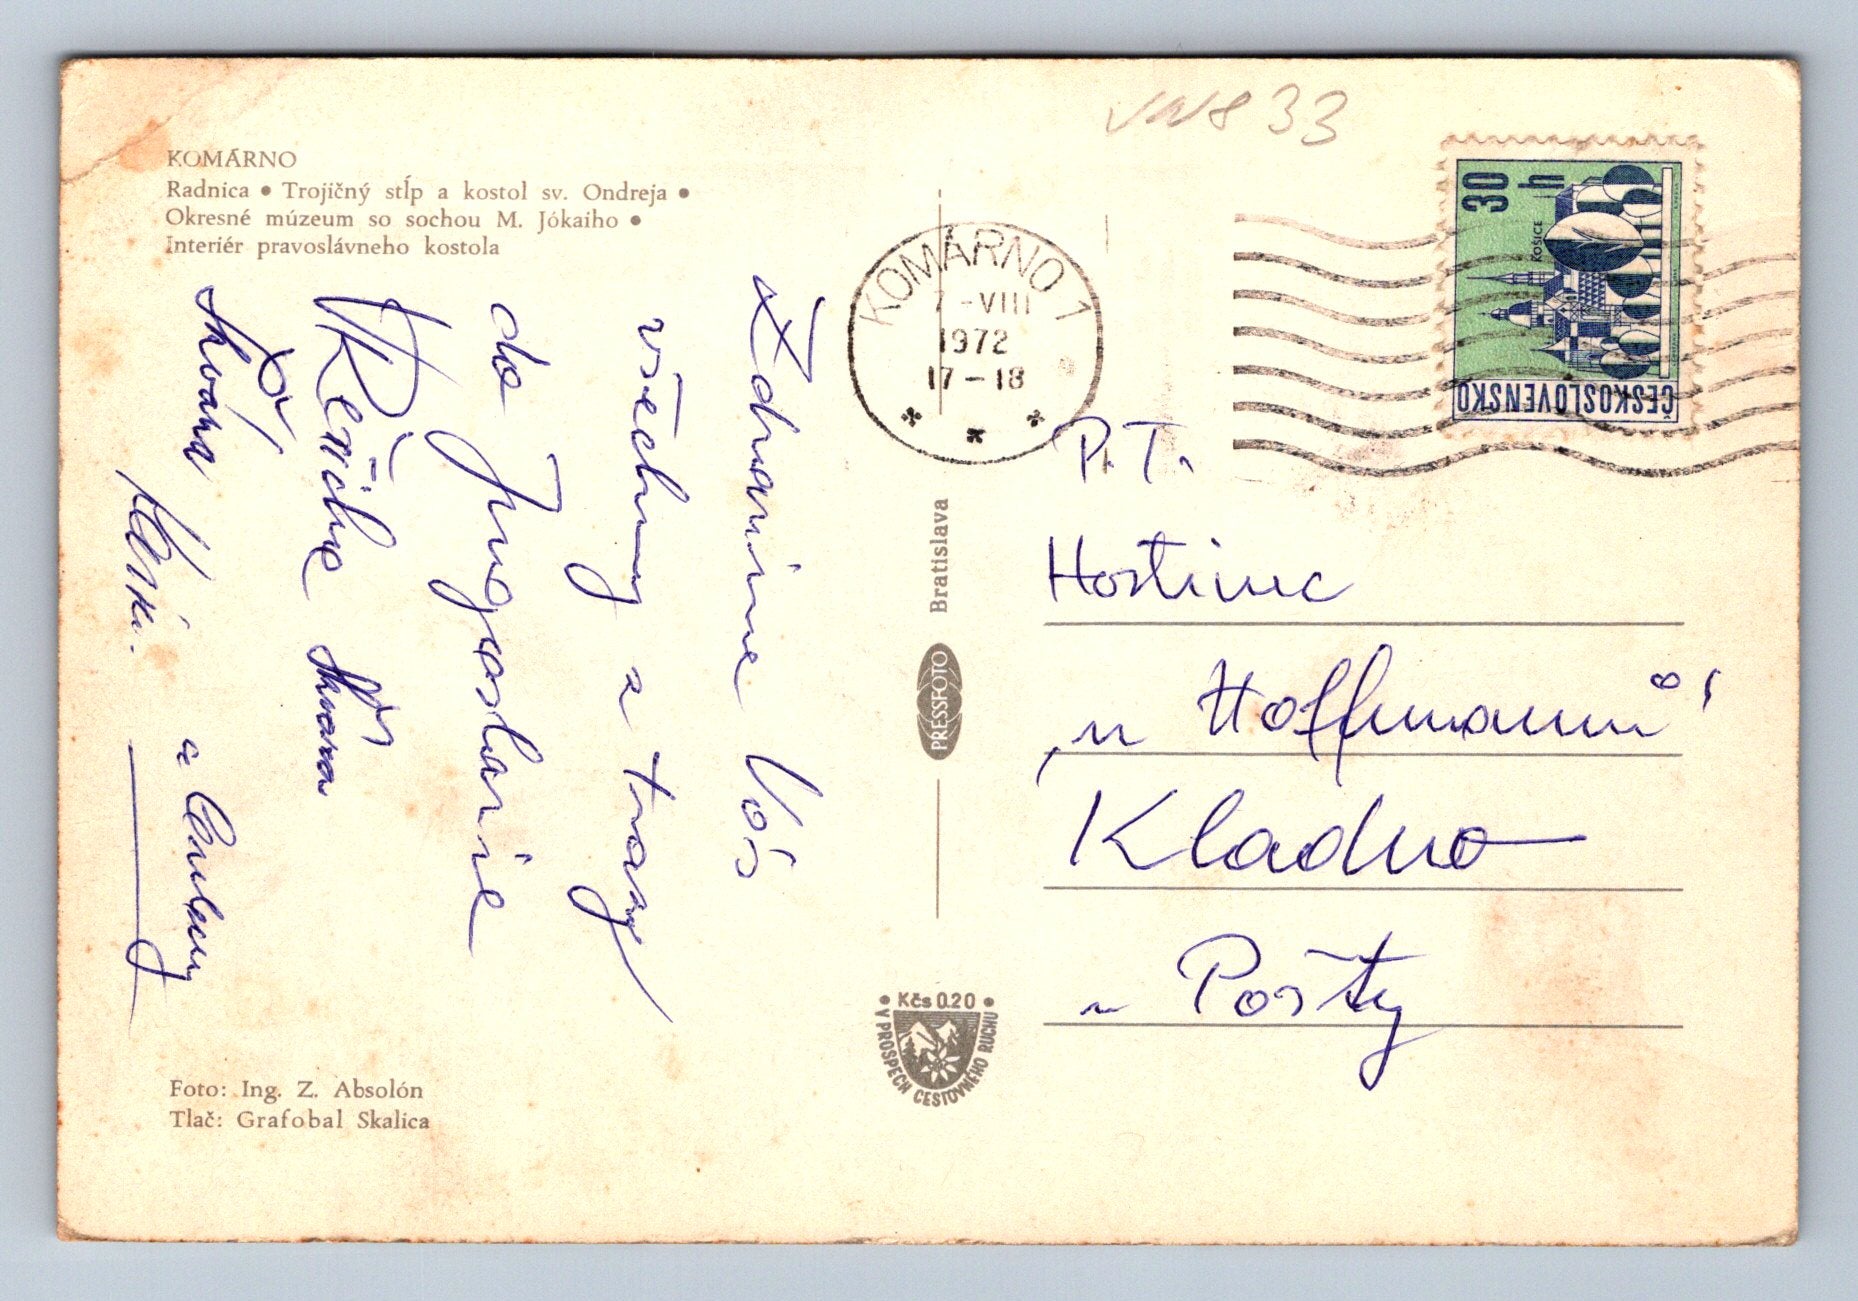 vns 33
KOMÁRNO
Radnica • Trojičný stĺp a kostol sv. Ondreja •
Okresné múzeum so sochou M. Jókaiho •
Interiér pravoslávneho kostola
Zdravíme Vás
všechny z trasy
do Jugoslavie
a
Foto: Ing. Z. Absolón
Tlač: Grafobal Skalica
KOMÁRNO 1
7-VIII
1972
17-18
PRESSFOTO Bratislava
• Kčs 0.20 •
V PROSPECH CESTOVNÉHO RUCHU
30 h
KOŠICE
ČESKOSLOVENSKO
P.T.
Hostinec
„u Hoffmannů“
Kladno
u Pošty